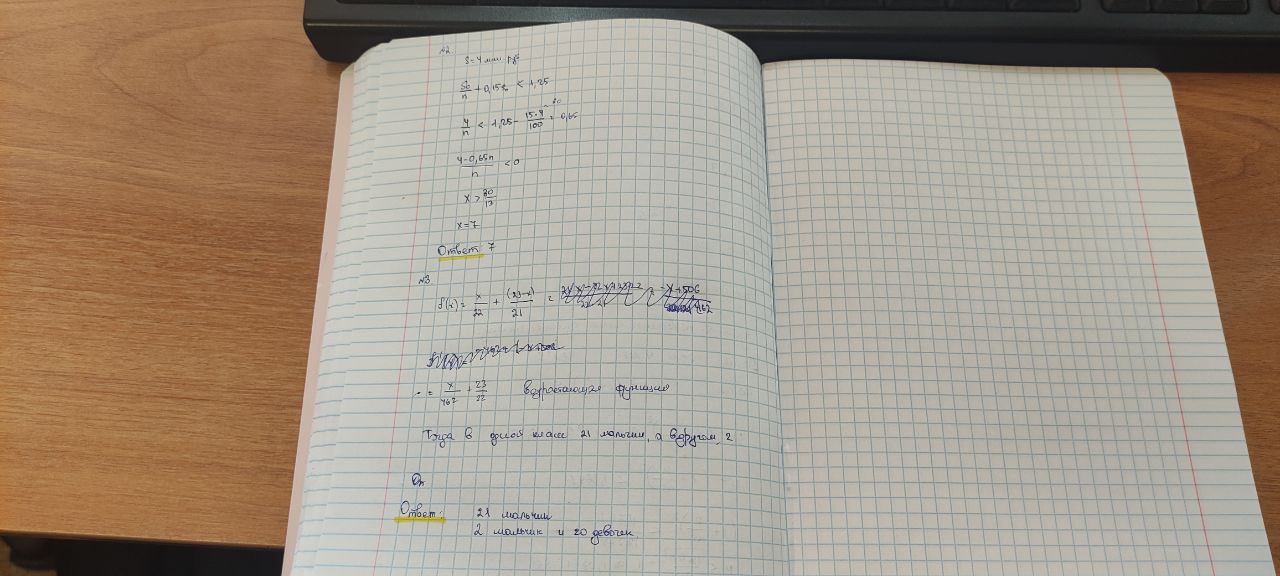 №2
S = 4 млн. руб
S₀/n + 0,15S₀ < 1,25
4/n < 1,25 - 15·4/100 = 0,65
4-0,65n/n < 0
x > 80/13
x = 7
Ответ 7
№3
f(x) = x/22 + (23-x)/21 = -x+506 462
= x/462 + 23/22 возрастающая функция
Тогда в одной класс 21 мальчик, а в другом, 2
От
Ответ: 21 мальчик
2 мальчик и 20 девочек